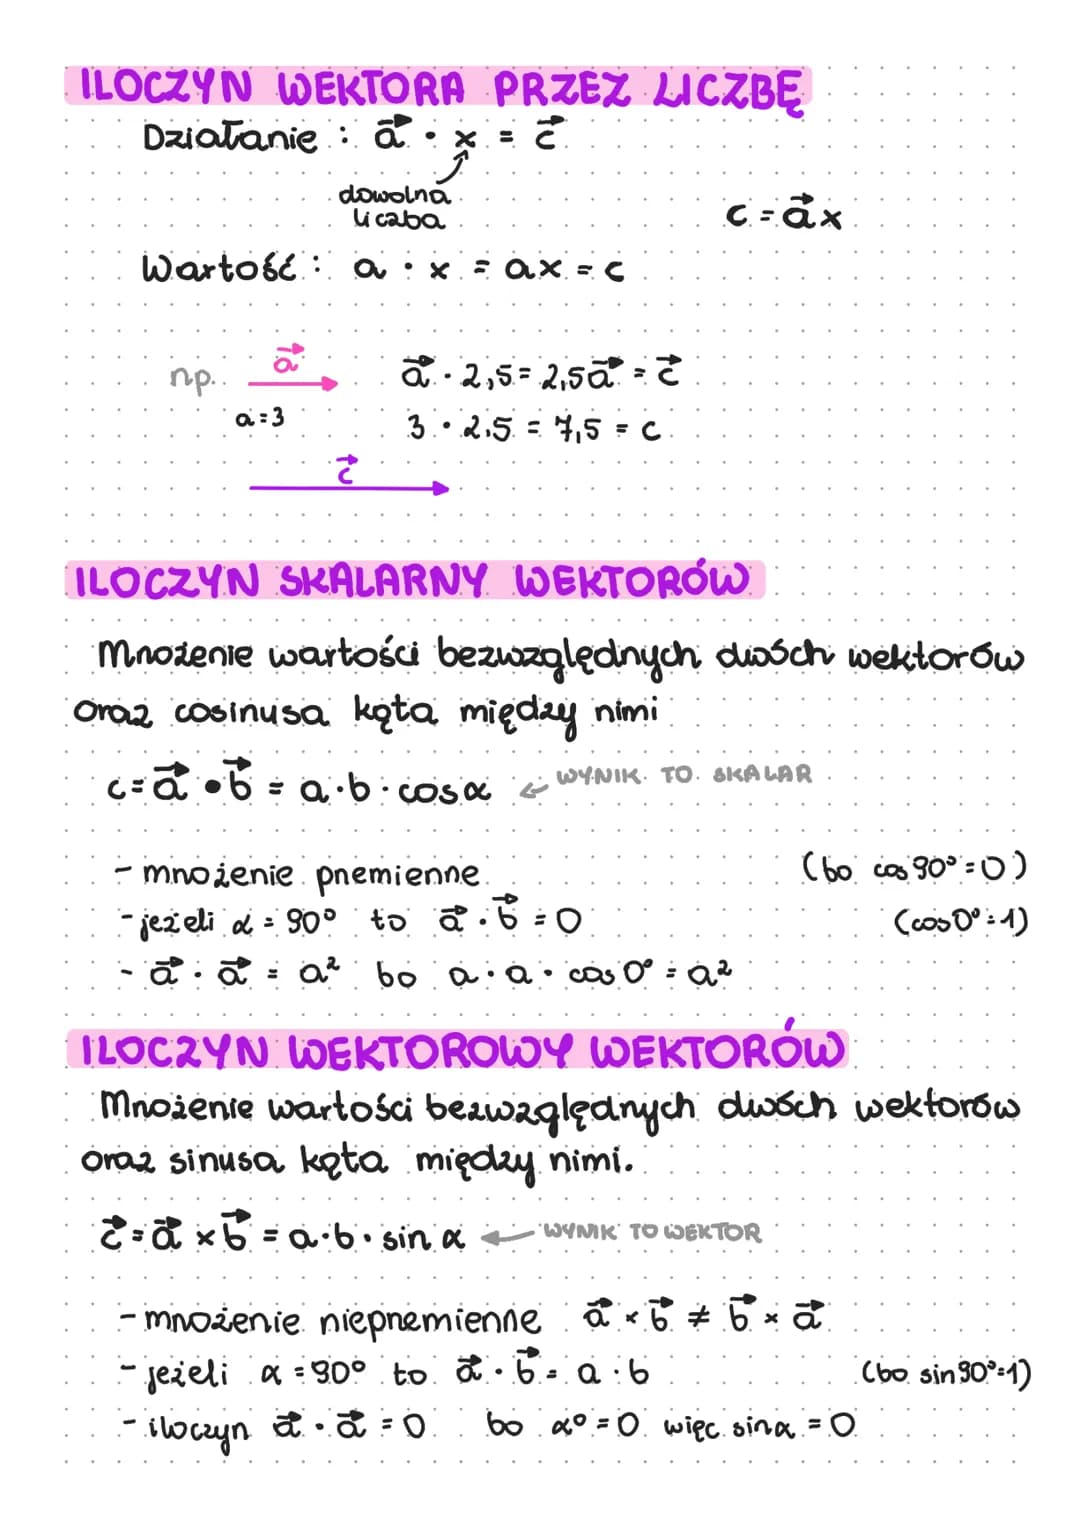 ILOCZYN WEKTORA PRZEZ LICZBĘ
Działanie : a⃗ · x = c⃗
dowolna
liczba
c = a⃗x
Wartość : a · x = ax = c
np. a⃗
a⃗ · 2,5 = 2,5a⃗ = c⃗
a = 3
3 · 2,5 = 7,5 = c
c⃗
ILOCZYN SKALARNY WEKTORÓW
Mnożenie wartości bezwzględnych dwóch wektorów
oraz cosinusa kąta między nimi
c = a⃗ • b⃗ = a·b·cosα ← WYNIK TO SKALAR
- mnożenie przemienne
(bo cos90° = 0)
- jeżeli α = 90° to a⃗ · b⃗ = 0
(cos0° = 1)
- a⃗ · a⃗ = a² bo a · a · cos0° = a²
ILOCZYN WEKTOROWY WEKTORÓW
Mnożenie wartości bezwzględnych dwóch wektorów
oraz sinusa kąta między nimi.
c⃗ = a⃗ × b⃗ = a·b·sin α ← WYNIK TO WEKTOR
- mnożenie nieprzemienne a⃗ × b⃗ ≠ b⃗ × a⃗
- jeżeli α = 90° to a⃗ · b⃗ = a · b (bo sin90° = 1)
- iloczyn a⃗ · a⃗ = 0 bo α° = 0 więc sinα = 0